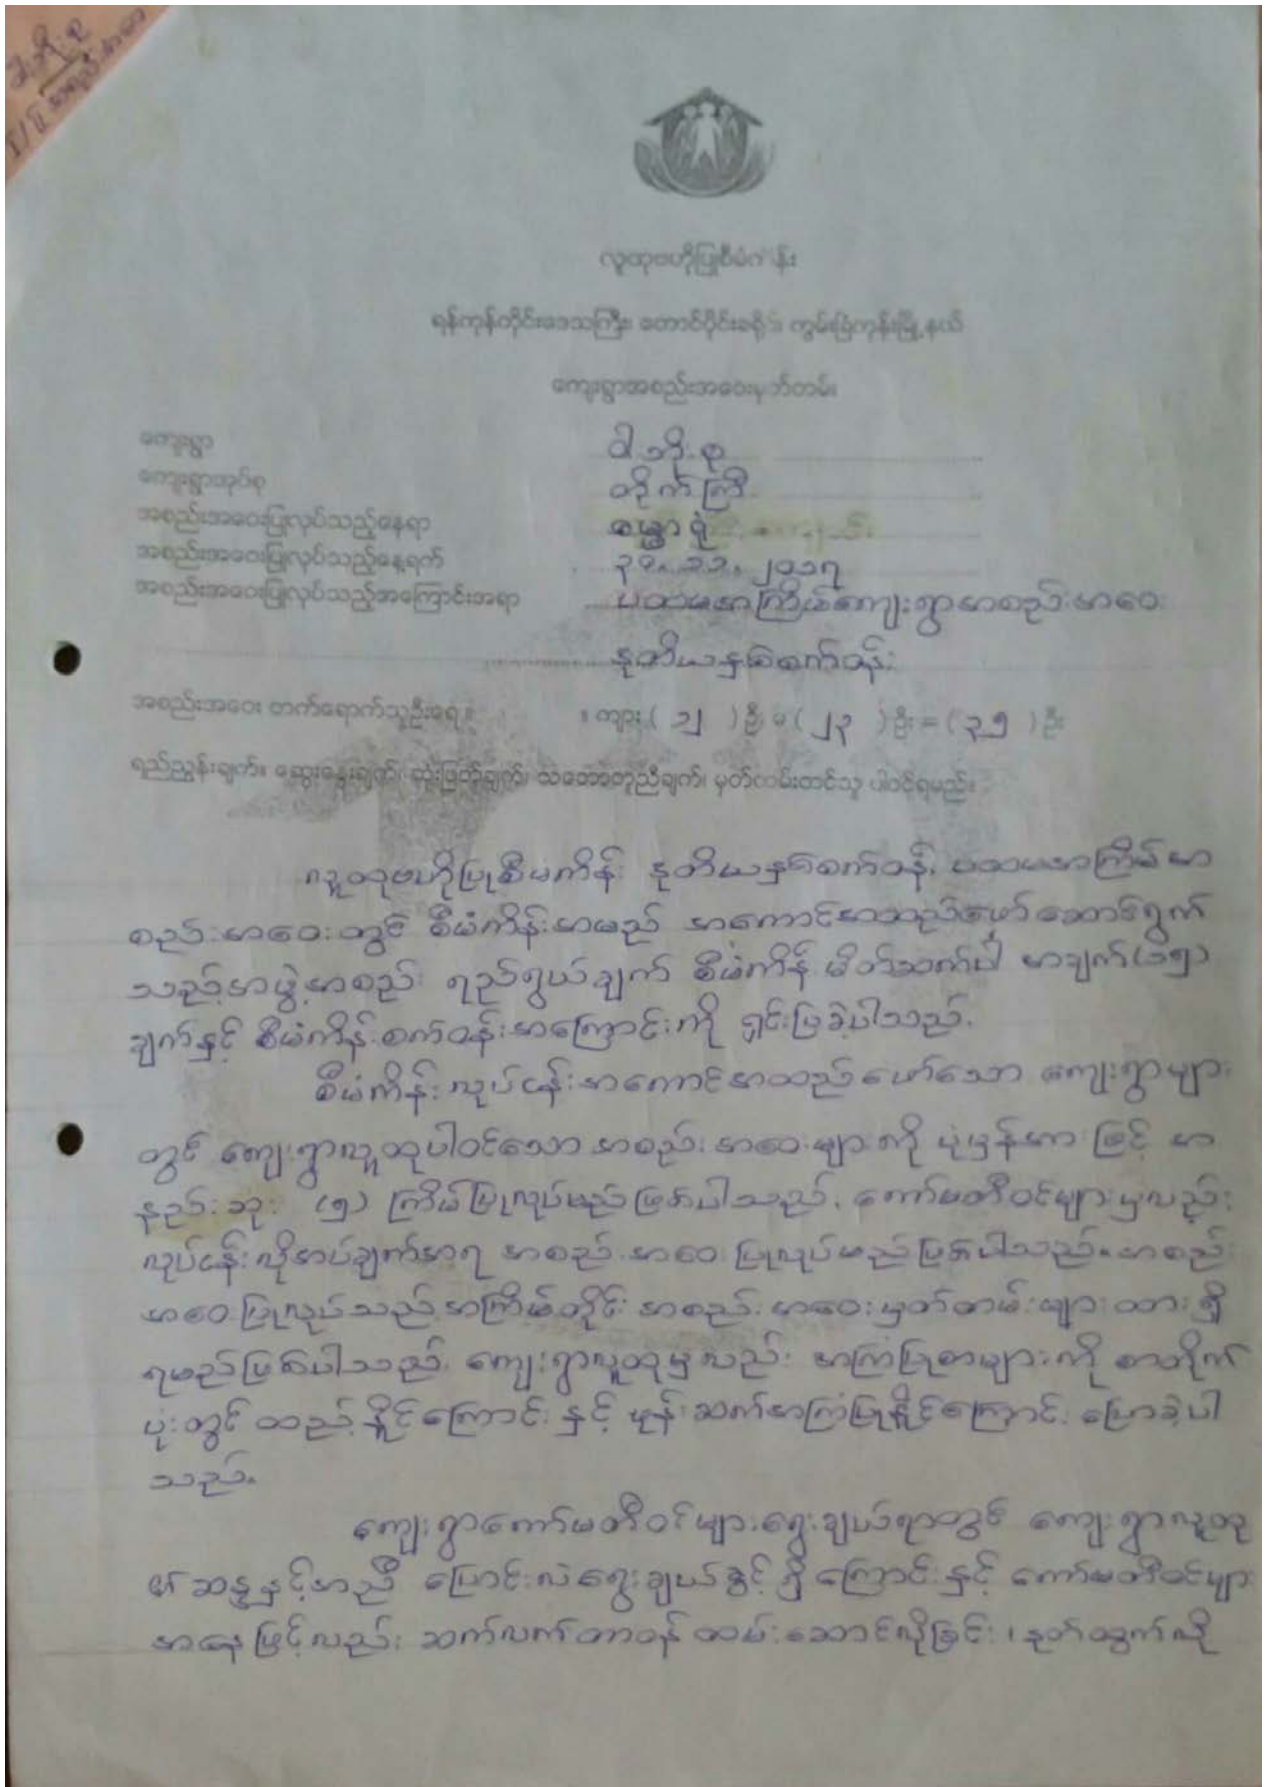 လူထုဗဟိုပြုစီမံကိန်း
ရန်ကုန်တိုင်းဒေသကြီး၊ တောင်ပိုင်းခရိုင်၊ ကွမ်းခြံကုန်းမြို့နယ်
ကျေးရွာအစည်းအဝေးမှတ်တမ်း
ကျေးရွာ ဝါးဘိုးစု
ကျေးရွာအုပ်စု တိုက်ကြီး
အစည်းအဝေးပြုလုပ်သည့်နေရာ ဓမ္မာရုံ
အစည်းအဝေးပြုလုပ်သည့်နေ့ရက် ၃၀.၁၁.၂၀၁၇
အစည်းအဝေးပြုလုပ်သည့်အကြောင်းအရာ ပထမအကြိမ်ကျေးရွာအစည်းအဝေး
ဒုတိယနှစ်စက်ဝန်း
အစည်းအဝေး တက်ရောက်သူဦးရေ ။ ။ ကျား ( ၁၂ ) ဦး မ ( ၂၃ ) ဦး = ( ၃၅ ) ဦး
ရည်ညွှန်းချက်။ ဆွေးနွေးချက်၊ ဆုံးဖြတ်ချက်၊ သဘောတူညီချက်၊ မှတ်တမ်းတင်သူ ပါဝင်ရမည်။
လူထုဗဟိုပြုစီမံကိန်း ဒုတိယနှစ်စက်ဝန်း ပထမအကြိမ်အ
စည်းအဝေးတွင် စီမံကိန်းအမည် အကောင်အထည်ဖော်ဆောင်ရွက်
သည့်အဖွဲ့အစည်း ရည်ရွယ်ချက် စီမံကိန်းမိတ်ဆက်ပါ အချက်(၁၅)
ချက်နှင့် စီမံကိန်းစက်ဝန်းအကြောင်းကို ရှင်းပြခဲ့ပါသည်.
စီမံကိန်းလုပ်ငန်းအကောင်အထည်ဖော်သော ကျေးရွာများ
တွင် ကျေးရွာလူထုပါဝင်သော အစည်းအဝေးများကို ပုံမှန်အားဖြင့် အ
နည်းဆုံး (၅) ကြိမ်ပြုလုပ်မည်ဖြစ်ပါသည်. ကော်မတီဝင်များမှလည်း
လုပ်ငန်းလိုအပ်ချက်အရ အစည်းအဝေးပြုလုပ်မည်ဖြစ်ပါသည်။ အစည်း
အဝေးပြုလုပ်သည့်အကြိမ်တိုင်း အစည်းအဝေးမှတ်တမ်းများထားရှိ
ရမည်ဖြစ်ပါသည်. ကျေးရွာလူထုမှလည်း အကြံပြုစာများကို စာတိုက်
ပုံးတွင် ထည့်နိုင်ကြောင်း နှင့် ဖုန်းဆက်အကြံပြုနိုင်ကြောင်း ပြောခဲ့ပါ
သည်.
ကျေးရွာကော်မတီဝင်များရွေးချယ်ရာတွင် ကျေးရွာလူထု
၏ဆန္ဒနှင့်အညီ ပြောင်းလဲရွေးချယ်ခွင့်ရှိကြောင်းနှင့် ကော်မတီဝင်များ
အနေဖြင့်လည်း ဆက်လက်တာဝန်ထမ်းဆောင်လိုခြင်း ၊ နုတ်ထွက်လို